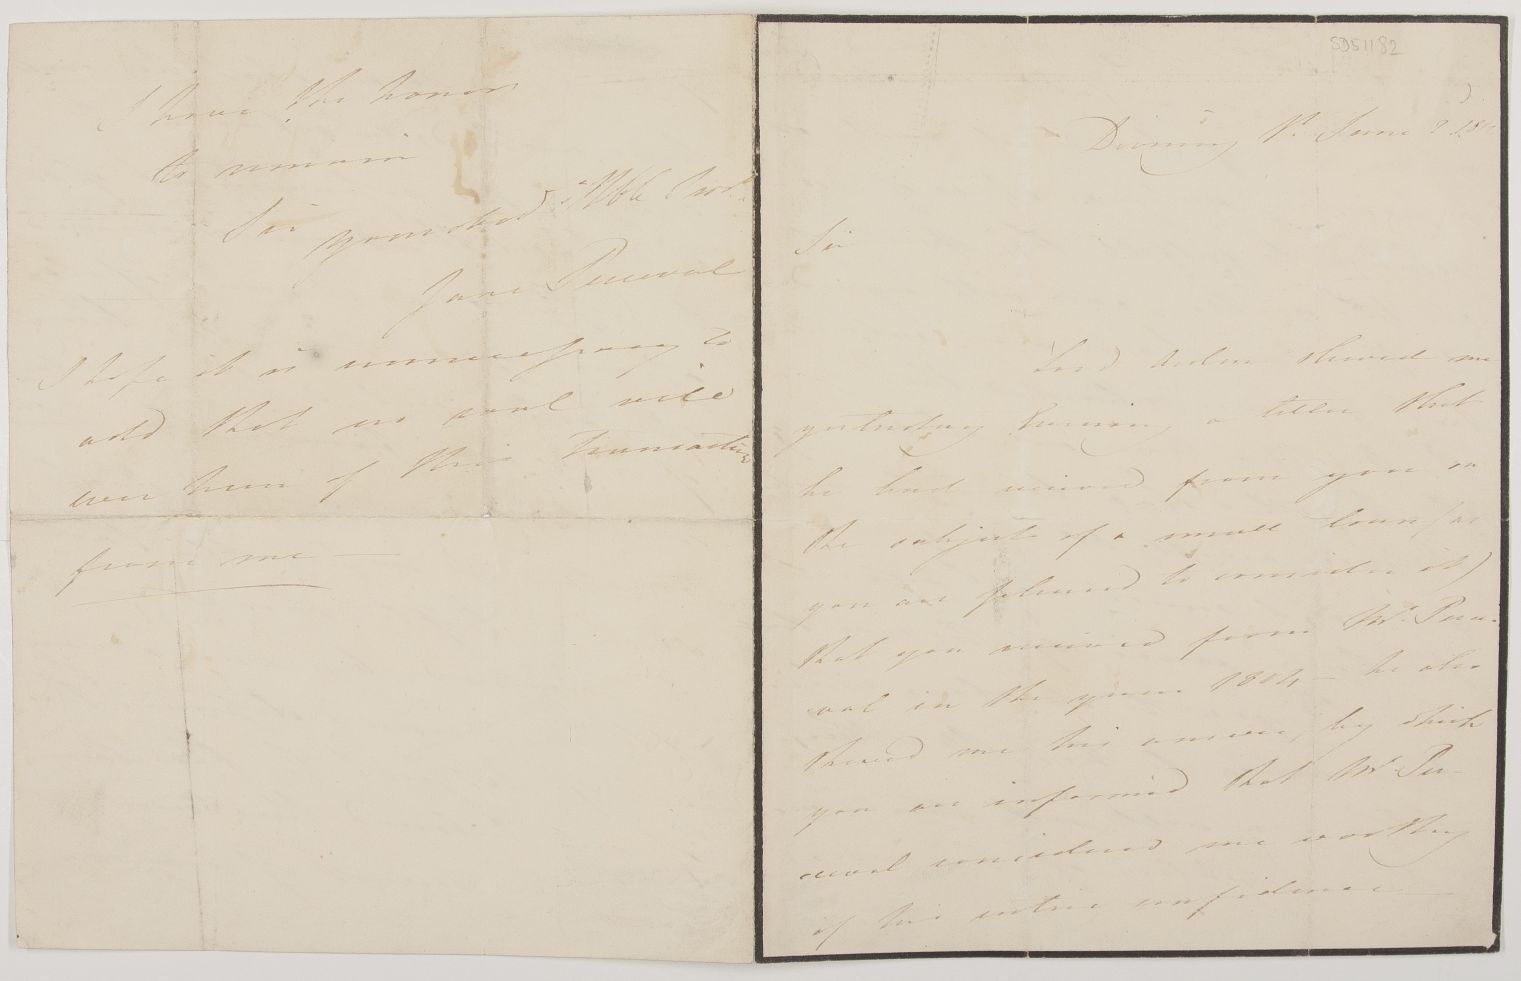 SD51182
Downing St. June 2. 1812
Sir
Lord Arden shewed me
yesterday Evening a letter that
he had received from you on
the subject of a small loan (as
you are pleased to consider it)
that you received from Mr. Perce-
val in the year 1804 — he also
shewed me his answer, by which
you are informed that Mr. Per-
ceval considered me worthy
of his entire confidence —
I have the honor
to remain
Sir
your obedt. Hble Servt.
Jane Perceval
I hope it is unnecessary to
add that no soul will
ever hear of this transaction
from me —